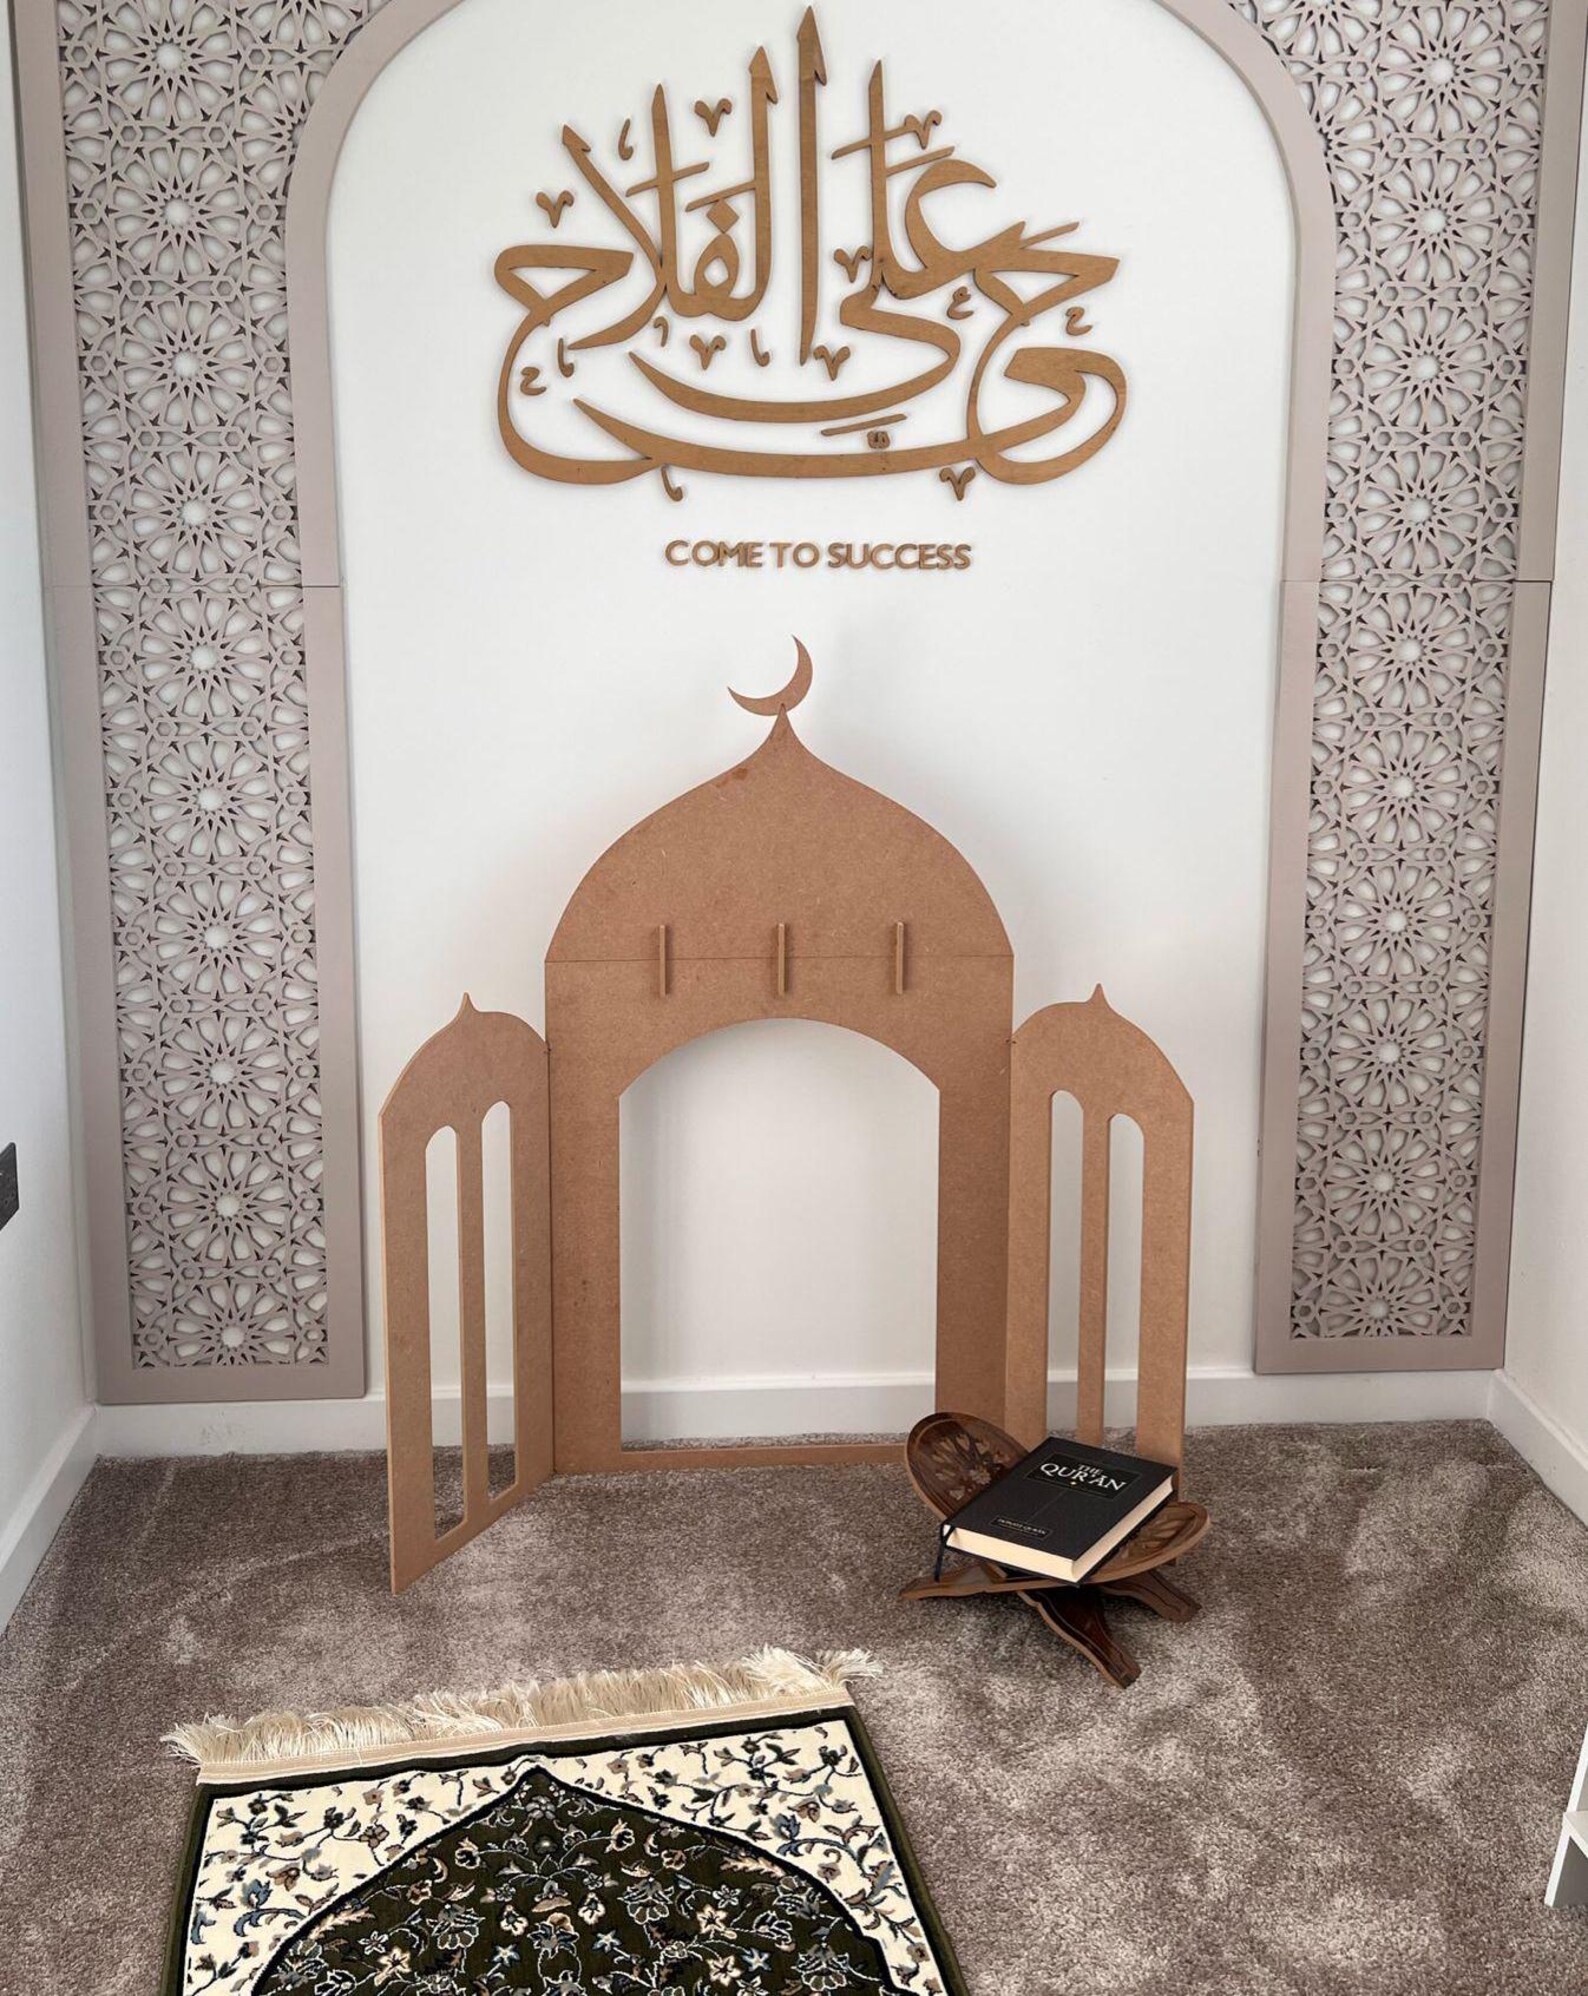 حي على الفلاح
COME TO SUCCESS
THE
QUR'AN